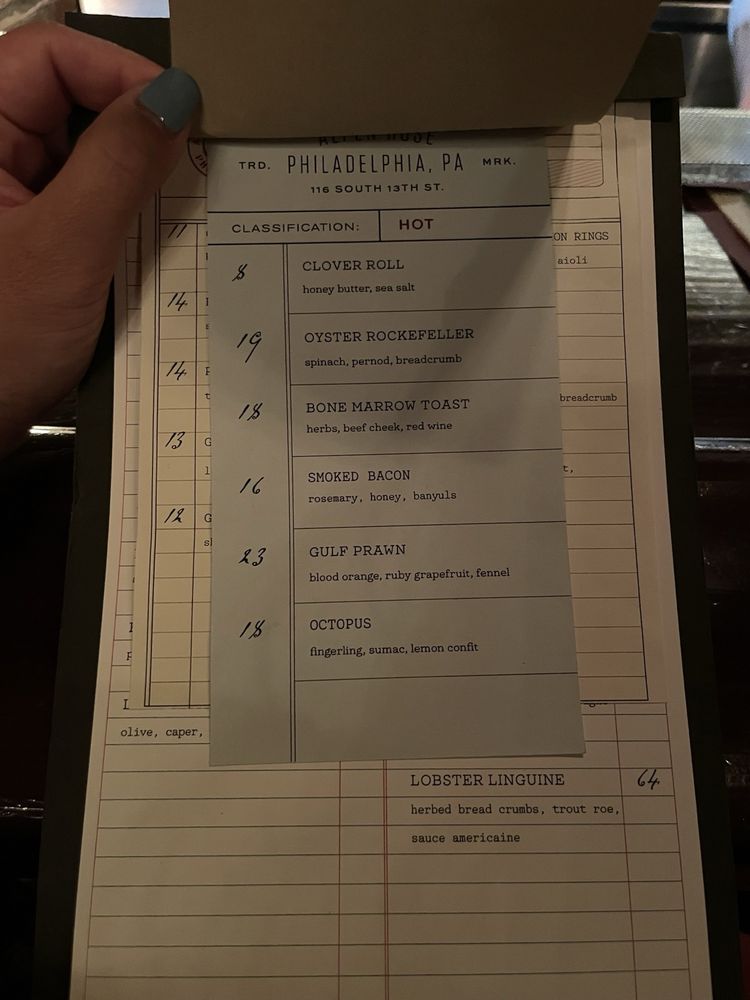 ALPEN ROSE
TRD. PHILADELPHIA, PA MRK.
116 SOUTH 13TH ST.
CLASSIFICATION: HOT
8 CLOVER ROLL
honey butter, sea salt
19 OYSTER ROCKEFELLER
spinach, pernod, breadcrumb
18 BONE MARROW TOAST
herbs, beef cheek, red wine
16 SMOKED BACON
rosemary, honey, banyuls
23 GULF PRAWN
blood orange, ruby grapefruit, fennel
18 OCTOPUS
fingerling, sumac, lemon confit
11
ON RINGS
aioli
14
14
breadcrumb
13 G
12 G
olive, caper,
LOBSTER LINGUINE 64
herbed bread crumbs, trout roe,
sauce americaine